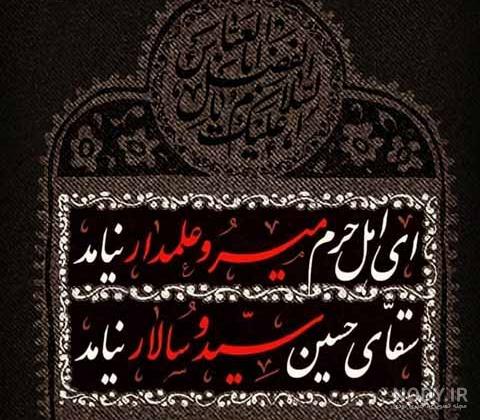 السلام علیک یا اباالفضل العباس
ای اهل حرم میر و علمدار نیامد
سقّای حسین سیّد و سالار نیامد
NODY.IR